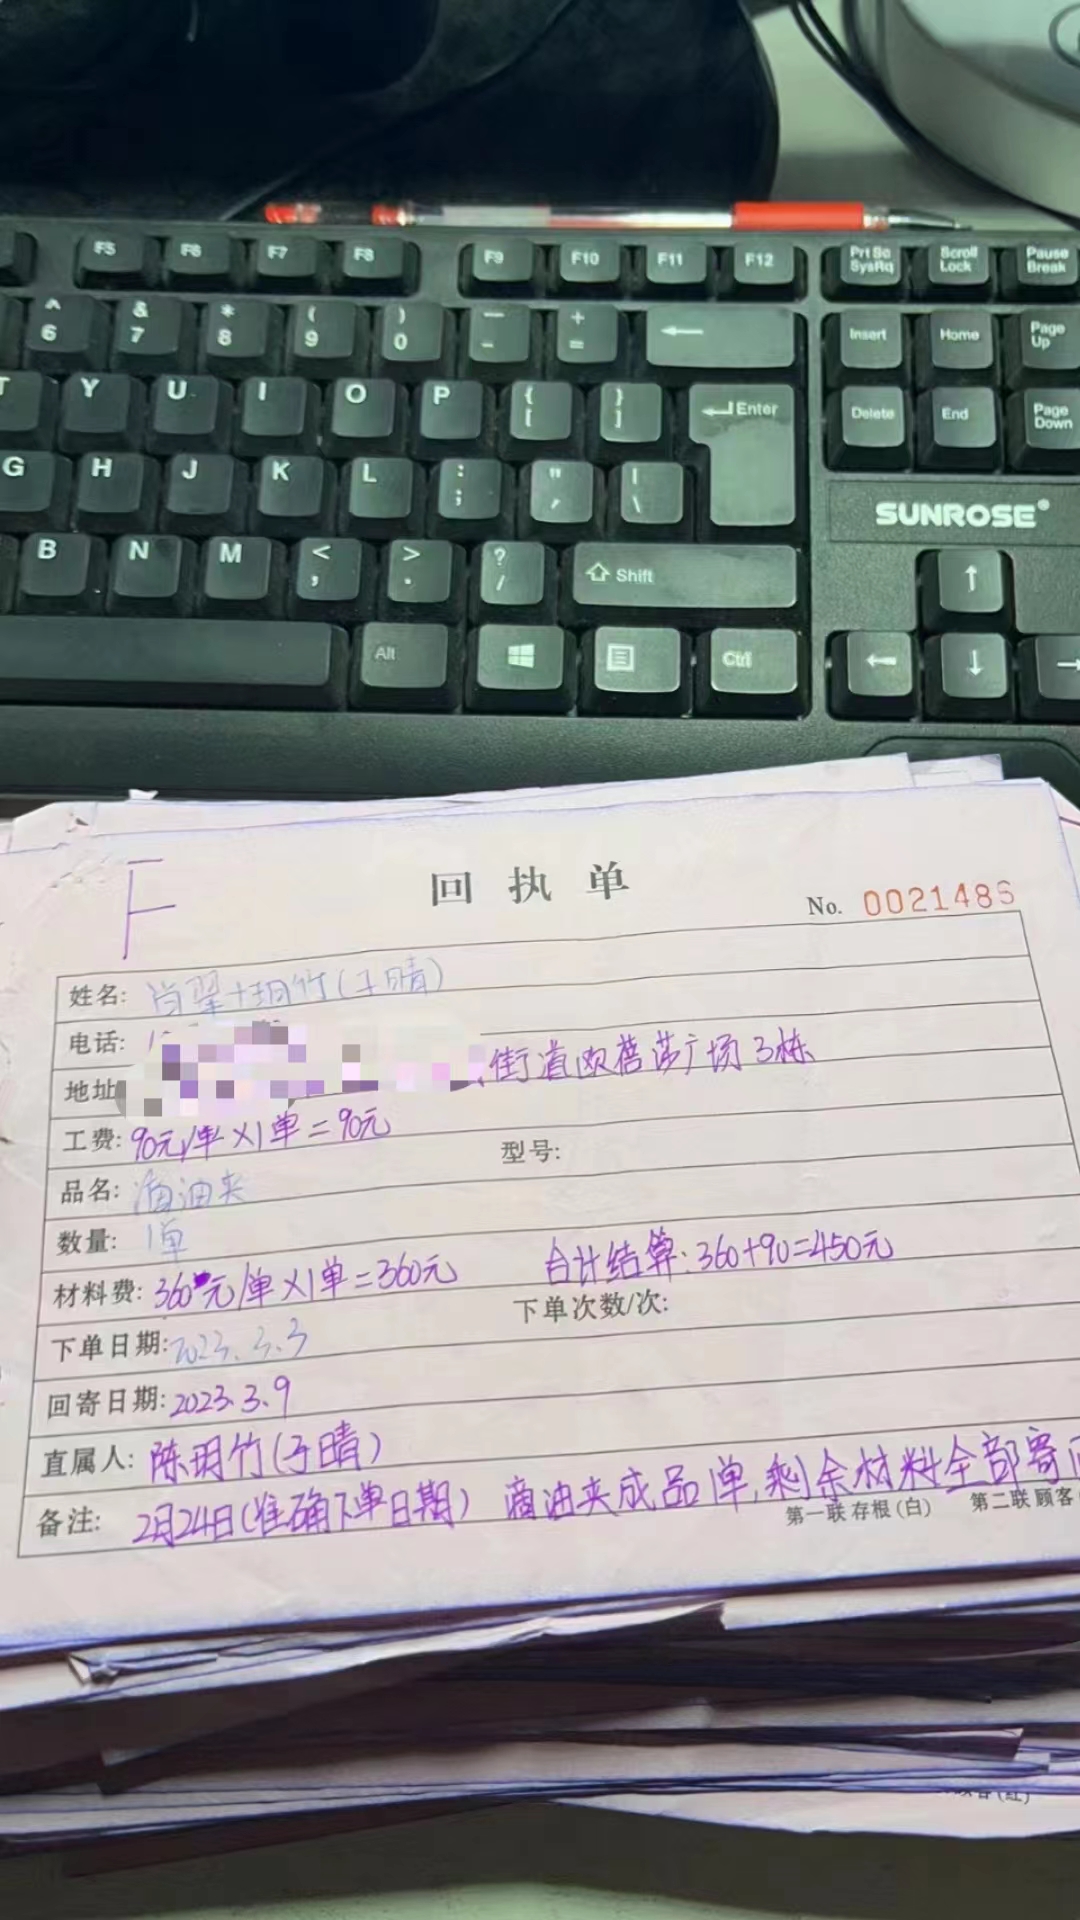 F5 F6 F7 F8 F9 F10 F11 F12 Prt Sc SysRq Scroll Lock Pause Break
^ 6 & 7 * 8 ( 9 ) 0 — - + = Insert Home Page Up
T Y U I O P { [ } ] Enter Delete End Page Down
G H J K L : ; " ' | \
SUNROSE®
B N M < , > . ? / Shift
Alt Ctrl
F
回执单
No. 0021486
姓名: 肖翠+玥竹(子晴)
电话:
地址 街道欧蓓莎广场3栋
工费: 90元/单×1单=90元
型号:
品名: 滴油夹
数量: 1单
材料费: 360元/单×1单=360元 合计结算:360+90=450元
下单日期: 2023.3.3 下单次数/次:
回寄日期: 2023.3.9
直属人: 陈玥竹(子晴)
备注: 2月24日(准确下单日期) 滴油夹成品1单,剩余材料全部寄
第一联 存根(白) 第二联 顾客